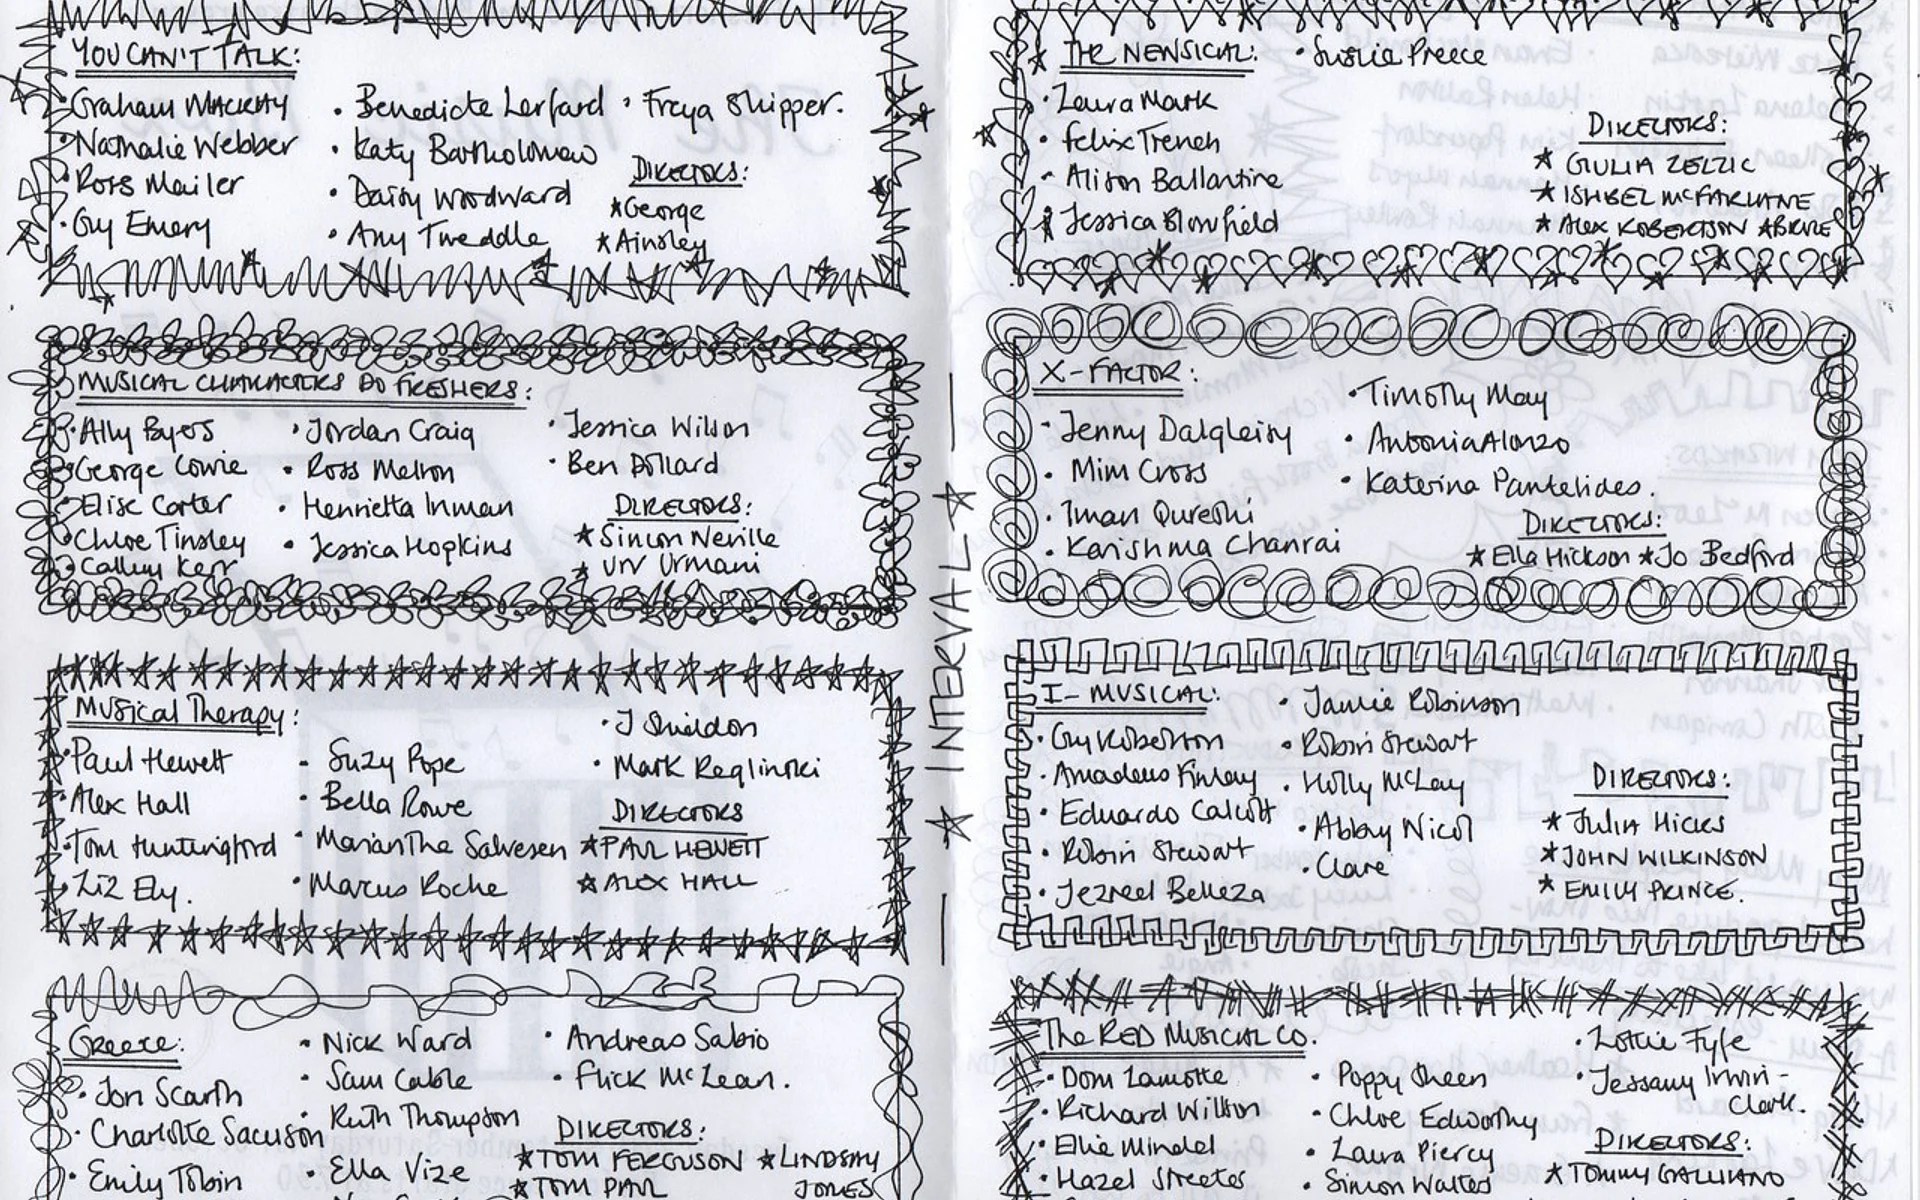 YOU CAN'T TALK:
· Graham MACKAY
· Nathalie Webber
· Ross Mailer
· Guy Emery
· Benedicte Lerfard
· Katy Bartholomew
· Daisy Woodward
· Amy Tweddle
· Freya Shipper.
DIRECTORS:
★ George
★ Ainsley
MUSICAL CHARACTERS DO FRESHERS:
· Ally Byers
· George Cowie
· Elise Carter
· Chloe Tinsley
· Callum Kerr
· Jordan Craig
· Ross Melton
· Henrietta Inman
· Jessica Hopkins
· Jessica Wilson
· Ben Dollard
DIRECTORS:
★ Simon Neville
★ Urv Urmani
Musical Therapy:
· Paul Hewett
· Alex Hall
· Tom Huntingford
· Liz Ely.
· Suzy Pope
· Bella Rowe
· Mariantha Salvesen
· Marcus Roche
· J Sheldon
· Mark Reglinski
DIRECTORS
★ PAUL HEWETT
★ ALEX HALL
Greece:
· Jon Scarth
· Charlotte Sacuson
· Emily Tobin
· Nick Ward
· Sam Cable
· Ruth Thompson
· Ella Vize
· Andreas Sabio
· Flick McLean.
DIRECTORS:
★ TOM FERGUSON ★ LINDSAY
★ TOM PAUL JONES
— ★ INTERVAL ★ —
THE NENSICAL:
· Laura Mark
· Felix Trench
· Alison Ballantine
· Jessica Blowfield
· Susie Preece
DIRECTORS:
★ GIULIA ZELZIC
★ ISHBEL MCFARLANE
★ ALEX ROBERTSON
X-FACTOR:
· Jenny Dalgleish
· Mim Cross
· Iman Qureshi
· Karishma Chanrai
· Timothy May
· Antonia Alonzo
· Katerina Pantelides.
DIRECTORS:
★ Ella Hickson ★ Jo Bedford
I-MUSICAL:
· Guy Robertson
· Amadeus Finlay
· Eduardo Calcott
· Robin Stewart
· Jezreel Belleza
· Jamie Robinson
· Robin Stewart
· Holly McLay
· Abbay Nicol
· Clare
DIRECTORS:
★ JULIA HICKS
★ JOHN WILKINSON
★ EMILY PRINCE.
The RED MUSICAL CO.
· Dom Lamotte
· Richard Willson
· Ellie Mindel
· Hazel Streeter
· Poppy Sheen
· Chloe Edworthy
· Laura Piercy
· Simon Waites
· Lottie Fyfe
· Jessamy Irwin-
Clark.
DIRECTORS:
★ TOMMY GALLIANO